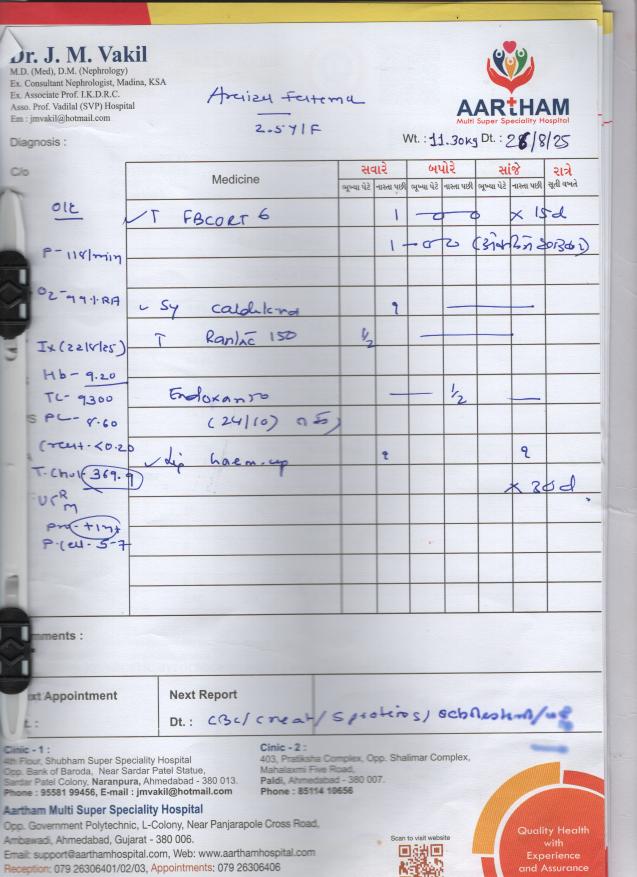 Dr. J. M. Vakil
M.D. (Med), D.M. (Nephrology)
Ex. Consultant Nephrologist, Madina, KSA
Ex. Associate Prof. I.K.D.R.C.
Asso. Prof. Vadilal (SVP) Hospital
Em : jmvakil@hotmail.com
AARTHAM
Multi Super Speciality Hospital
2.5Y/F
Wt. : 11.30kg Dt. : 26/8/25
Diagnosis :
C/o
Medicine
સવારે બપોરે સાંજે રાત્રે
ભૂખ્યા પેટે નાસ્તા પછી ભૂખ્યા પેટે નાસ્તા પછી ભૂખ્યા પેટે નાસ્તા પછી સૂતી વખતે
O/E
T FBCORT 6 1 — 0 — 0 x 15d
P - 118/min
1 — 0 — 0
O2 - 99% RA
Sy 1
T Rantac 150 1/2
Ix (22/8/25)
Hb - 9.20
TC - 9300
Endoxan 50 1/2
(24/10)
PC - 8.60
Creat - <0.20
haem-up 1 1
T. Chol - 369.9
x 30d.
P.cell - 5-7
mments :
xt Appointment
t. :
Next Report
Dt. : CBC/creat/
Clinic - 1 :
4th Floor, Shubham Super Speciality Hospital
Opp. Bank of Baroda, Near Sardar Patel Statue,
Sardar Patel Colony, Naranpura, Ahmedabad - 380 013.
Phone : 95581 99456, E-mail : jmvakil@hotmail.com
Clinic - 2 :
403, Pratiksha Complex, Opp. Shalimar Complex,
Mahalaxmi Five Road,
Paldi, Ahmedabad - 380 007.
Phone : 85114 10656
Aartham Multi Super Speciality Hospital
Opp. Government Polytechnic, L-Colony, Near Panjarapole Cross Road,
Ambawadi, Ahmedabad, Gujarat - 380 006.
Email: support@aarthamhospital.com, Web: www.aarthamhospital.com
Reception: 079 26306401/02/03, Appointments: 079 26306406
Scan to visit website
Quality Health
with
Experience
and Assurance